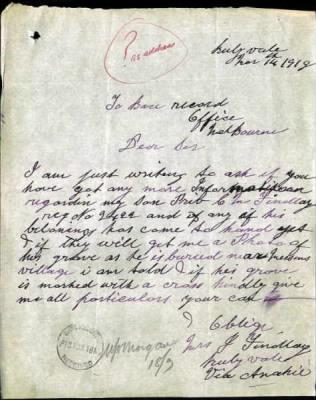 ? no address
Ruby vale
Mar 14th 1919
To Base record
Office
Melbourne
Dear Sir
I am just writing to ask if you
have got any more Information
regardin my Son Prib C W Findlay
reg No and if any of his
belonings has come to hand yet
& if they will get me a Photo of
his grave as he is buried near
village i am told & if his grave
is marked with a cross kindly give
me all particulors your can
Oblige
Mrs J Findlay
Ruby vale
Via Anakie
18/3